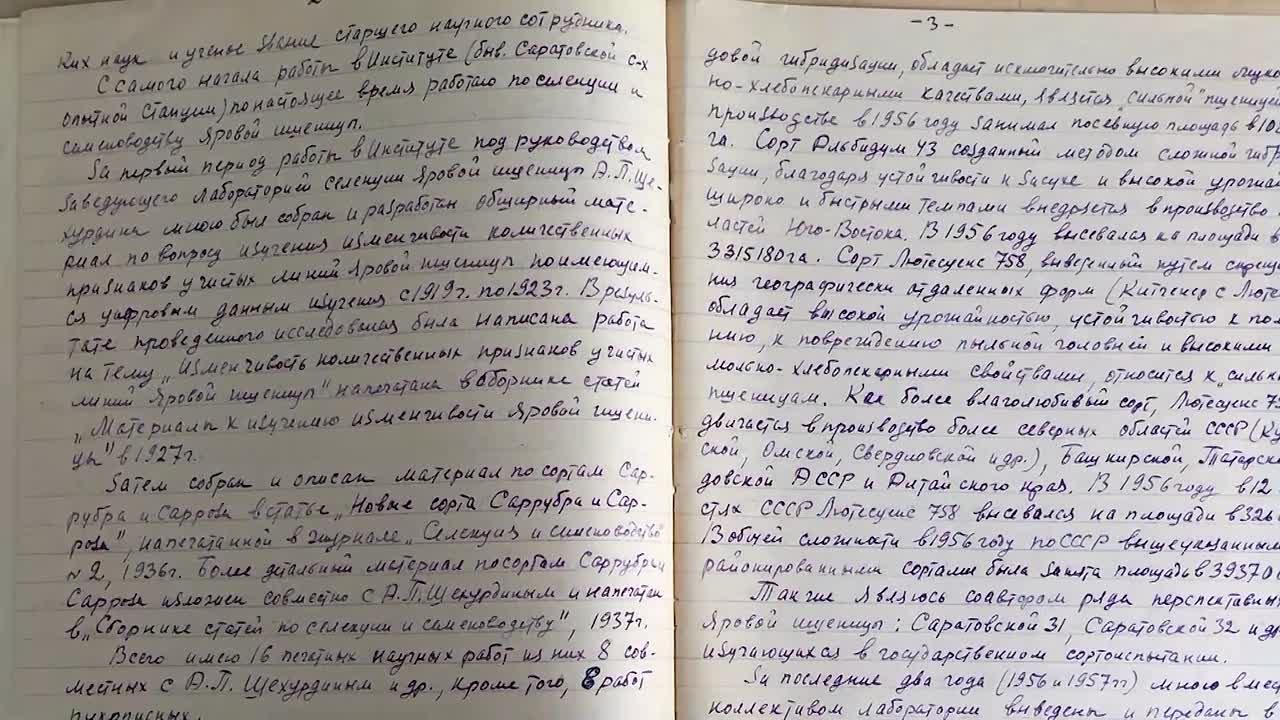 ких наук и ученое звание старшего научного сотрудника.
С самого начала работы в Институте (быв. Саратовской с-х
опытной станции) по настоящее время работаю по селекции и
семеноводству яровой пшеницы.
За первый период работы в Институте под руководством
заведующего Лабораторией селекции яровой пшеницы А.П. Ше-
хурдина мною был собран и разработан обширный мате-
риал по вопросу изучения изменчивости количественных
признаков у чистых линий яровой пшеницы по имеющим-
ся цифровым данным изучения с 1919г. по 1923г. В резуль-
тате проведенного исследования была написана работа
на тему „Изменчивость количественных признаков у чистых
линий яровой пшеницы" напечатана в сборнике статей
„Материалы к изучению изменчивости яровой пшени-
цы" в 1927г.
Затем собран и описан материал по сортам Сар-
рубра и Сарроза в статье „Новые сорта Саррубра и Сар-
роза", напечатанной в журнале „Селекция и семеноводство"
№2, 1936г. Более детальный материал по сортам Саррубра и
Сарроза изложен совместно с А.П. Шехурдиным и напечатан
в „Сборнике статей по селекции и семеноводству", 1937г.
Всего имею 16 печатных научных работ из них 8 сов-
местных с А.П. Шехурдиным и др., кроме того, 8 работ
рукописных.
-3-
довой гибридизации, обладает исключительно высокими
но-хлебопекарными качествами, является „сильной" пшеницей
производстве в 1956 году занимал посевную площадь в
га. Сорт Альбидум 43 созданный методом сложной гибр
зации, благодаря устойчивости к засухе и высокой урожай
широко и быстрыми темпами внедряется в производство
ластей Юго-Востока. В 1956 году высевался на площади в
3315180 га. Сорт Лютесценс 758, выведенный путем скрещи
ния географически отдаленных форм (Китченер с Люте
обладает высокой урожайностью, устойчивостью к пол
нию, к повреждению пыльной головней и высокими
мольно-хлебопекарными свойствами, относится к „сильн
пшеницам. Как более влаголюбивый сорт, Лютесценс 75
двигается в производство более северных областей СССР (Ку
ской, Омской, Свердловской и др.), Башкирской, Татарско
довской АССР и Алтайского края. В 1956 году в 12
стях СССР Лютесценс 758 высевался на площади в 326
В общей сложности в 1956 году по СССР вышеуказанным
районированными сортами была занята площадь в 39370
Также являюсь соавтором ряда перспективных
яровой пшеницы: Саратовской 31, Саратовской 32 и др
изучающихся в государственном сортоиспытании.
За последние два года (1956 и 1957гг) мною вмес
коллективом лаборатории выведены и переданы в